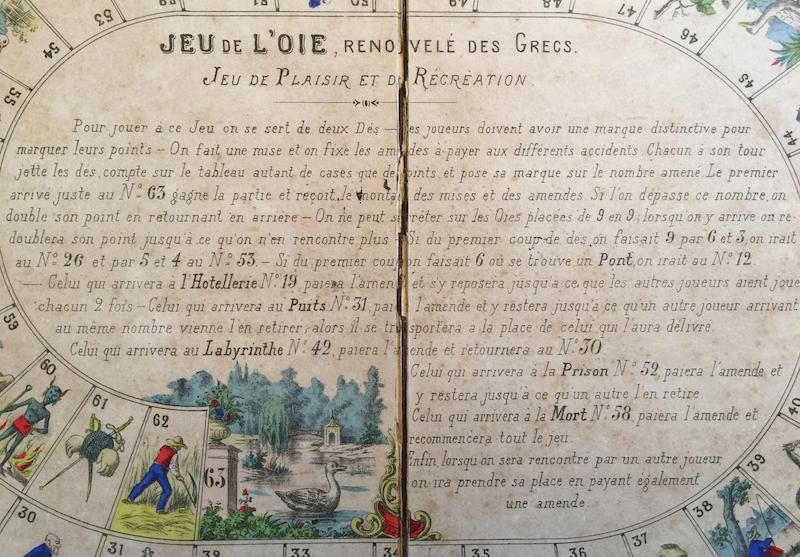 53
51
50
49
48
47
54
46
55
45
JEU DE L'OIE, RENOUVELÉ DES GRECS.
JEU DE PLAISIR ET DE RÉCRÉATION
Pour jouer à ce Jeu on se sert de deux Dés — Les joueurs doivent avoir une marque distinctive pour
marquer leurs points — On fait une mise et on fixe les amendes à payer aux différents accidents. Chacun à son tour
jette les dés, compte sur le tableau autant de cases que de points, et pose sa marque sur le nombre amené. Le premier
arrivé juste au N.º 63 gagne la partie et reçoit, le montant des mises et des amendes. Si l'on dépasse ce nombre, on
double son point en retournant en arrière — On ne peut s'arrêter sur les Oies placées de 9 en 9; lorsqu'on y arrive on re-
doublera son point jusqu'à ce qu'on n'en rencontre plus. Si du premier coup de dés, on faisait 9 par 6 et 3, on irait
au N.º 26 et par 5 et 4 au N.º 53 — Si du premier coup on faisait 6 où se trouve un Pont, on irait au N.º 12.
— Celui qui arrivera à l'Hotellerie N.º 19, paiera l'amende et s'y reposera jusqu'à ce que les autres joueurs aient joué
chacun 2 fois — Celui qui arrivera au Puits N.º 31, paiera l'amende et y restera jusqu'à ce qu'un autre joueur arrivant
au même nombre vienne l'en retirer; alors il se transportera à la place de celui qui l'aura délivré.
Celui qui arrivera au Labyrinthe N.º 42, paiera l'amende et retournera au N.º 30
Celui qui arrivera à la Prison N.º 52, paiera l'amende et
y restera jusqu'à ce qu'un autre l'en retire.
Celui qui arrivera à la Mort N.º 58, paiera l'amende et
recommencera tout le jeu.
Enfin, lorsqu'on sera rencontré par un autre joueur,
on ira prendre sa place en payant également
une amende.
59
60
61
62
63
30
31
32
33
34
35
36
37
38
39
40